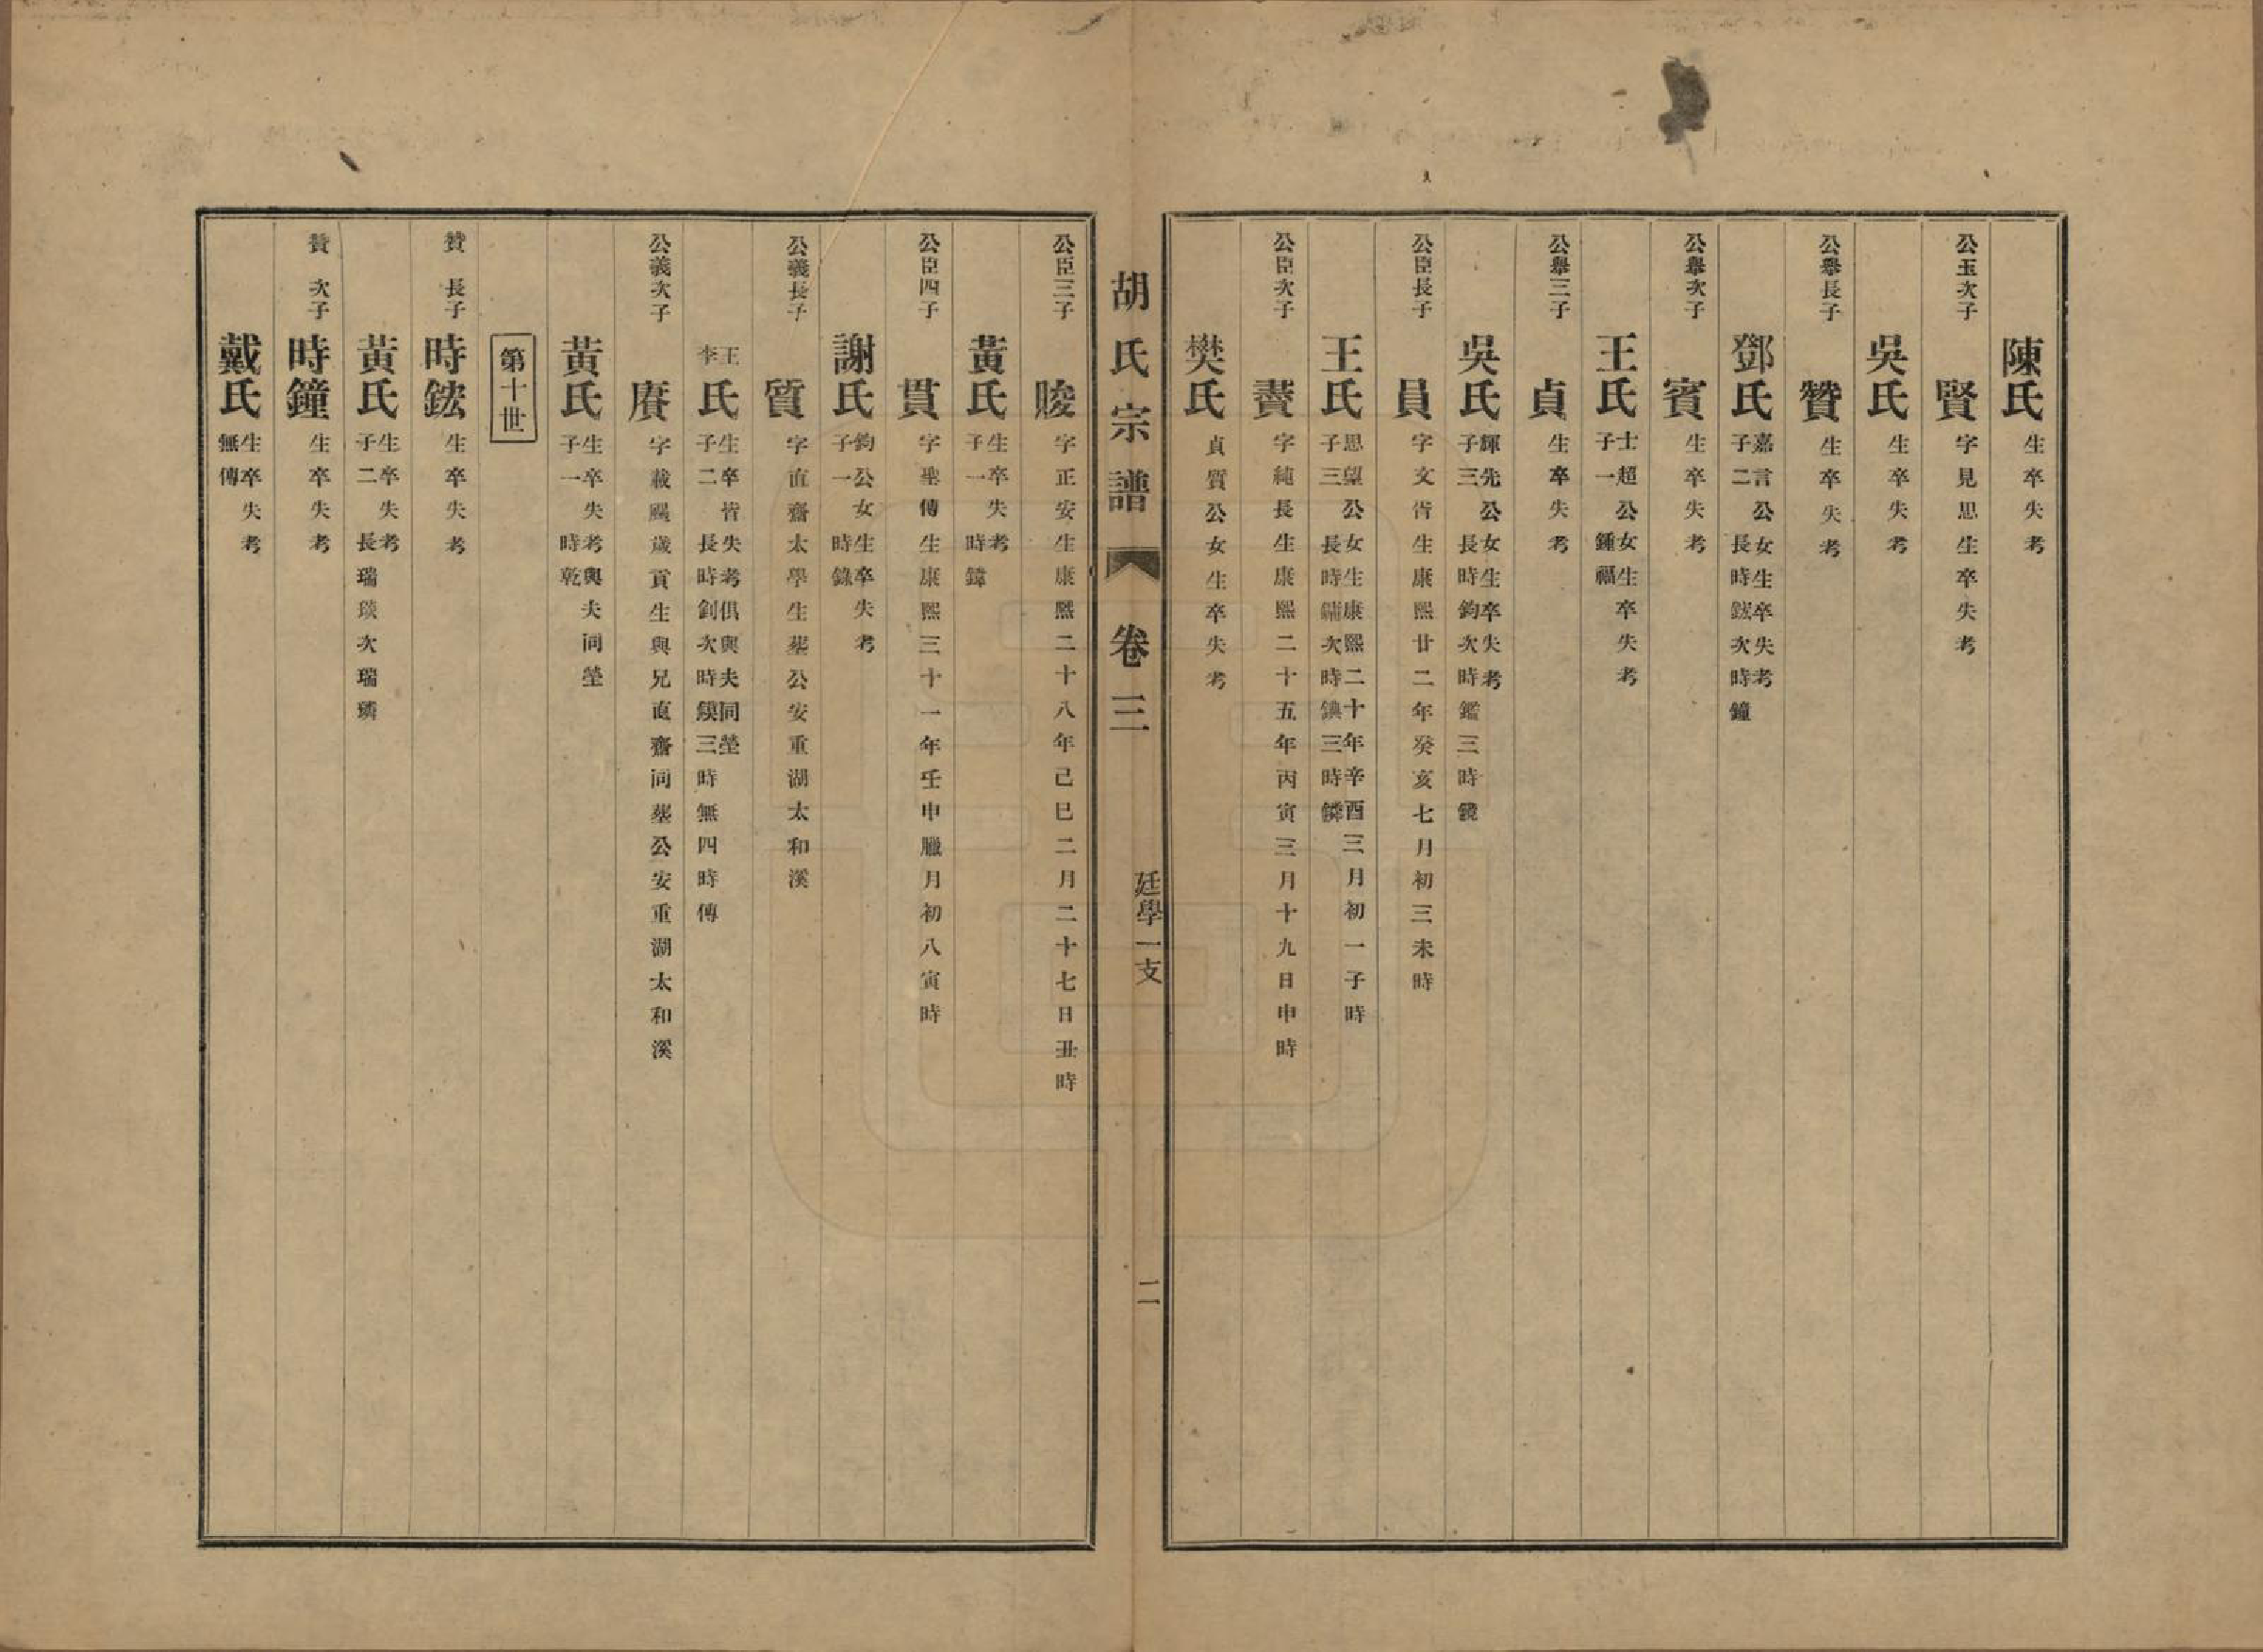 陳氏 生卒失考
公玉次子 賢 字見思生卒失考
吳氏 生卒失考
公舉長子 贊 生卒失考
鄧氏 嘉言公女生卒失考 子二 長時鋐次時鐘
公舉次子 賓 生卒失考
王氏 士超公女生卒失考 子一 鍾福
公舉三子 貞 生卒失考
吳氏 輝先公女生卒失考 子三 長時鈞次時鑑三時鐃
公臣長子 員 字文啓生康熙廿二年癸亥七月初三未時
王氏 思望公女生康熙二十年辛酉三月初一子時 子三 長時鏞次時鎮三時鏻
公臣次子 賮 字純長生康熙二十五年丙寅三月十九日申時
樊氏 貞質公女生卒失考
胡氏宗譜 卷三 廷學一支 二
公臣三子 賐 字正安生康熙二十八年己巳二月二十七日丑時
黃氏 生卒失考 子一 時鏵
公臣四子 貫 字聖傳生康熙三十一年壬申臘月初八寅時
謝氏 鈞公女生卒失考 子一 時錄
公義長子 質 字直齋太學生葬公安重湖太和溪
王李氏 生卒皆失考俱與夫同塋 子二 長時釗次時鏌三時無四時傳
公義次子 賡 字載颺歲貢生與兄直齋同葬公安重湖太和溪
黃氏 生卒失考與夫同塋 子一 時乾
第十世
贊長子 時鋐 生卒失考
黃氏 生卒失考 子二 長瑞琰次瑞璘
贊次子 時鐘 生卒失考
戴氏 生卒失考 無傳